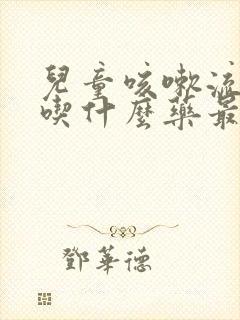 兒童咳嗽流
喫什麼藥最
鄧華德